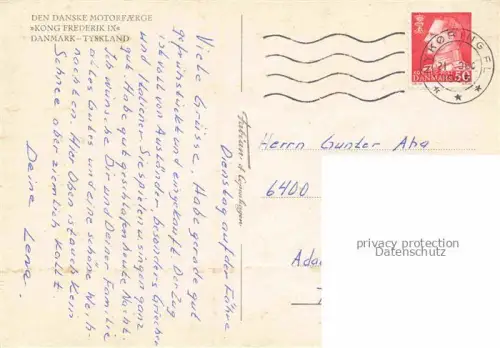 DEN DANSKE MOTORFÆRGE
»KONG FREDERIK IX«
DANMARK - TYSKLAND
Dienstag auf der Fähre.
Viele Grüsse. Habe gerade gut
gefrühstückt und eingekauft. Der Zug
ist voll von Ausländer besonders Griechen
und Italiener. Sie spielen u. singen ganz
gut. Habe gut geschlafen heute Nacht.
Ich wünsche Dir und Deiner Familie
alles Gutes und eine schöne Weih-
nachten. Hier Oben ist auch kein
Schnee aber ziemlich kalt.
Deine Lene.
DANMARK
50
Herrn Gunter
6400
privacy protection
Datenschutz